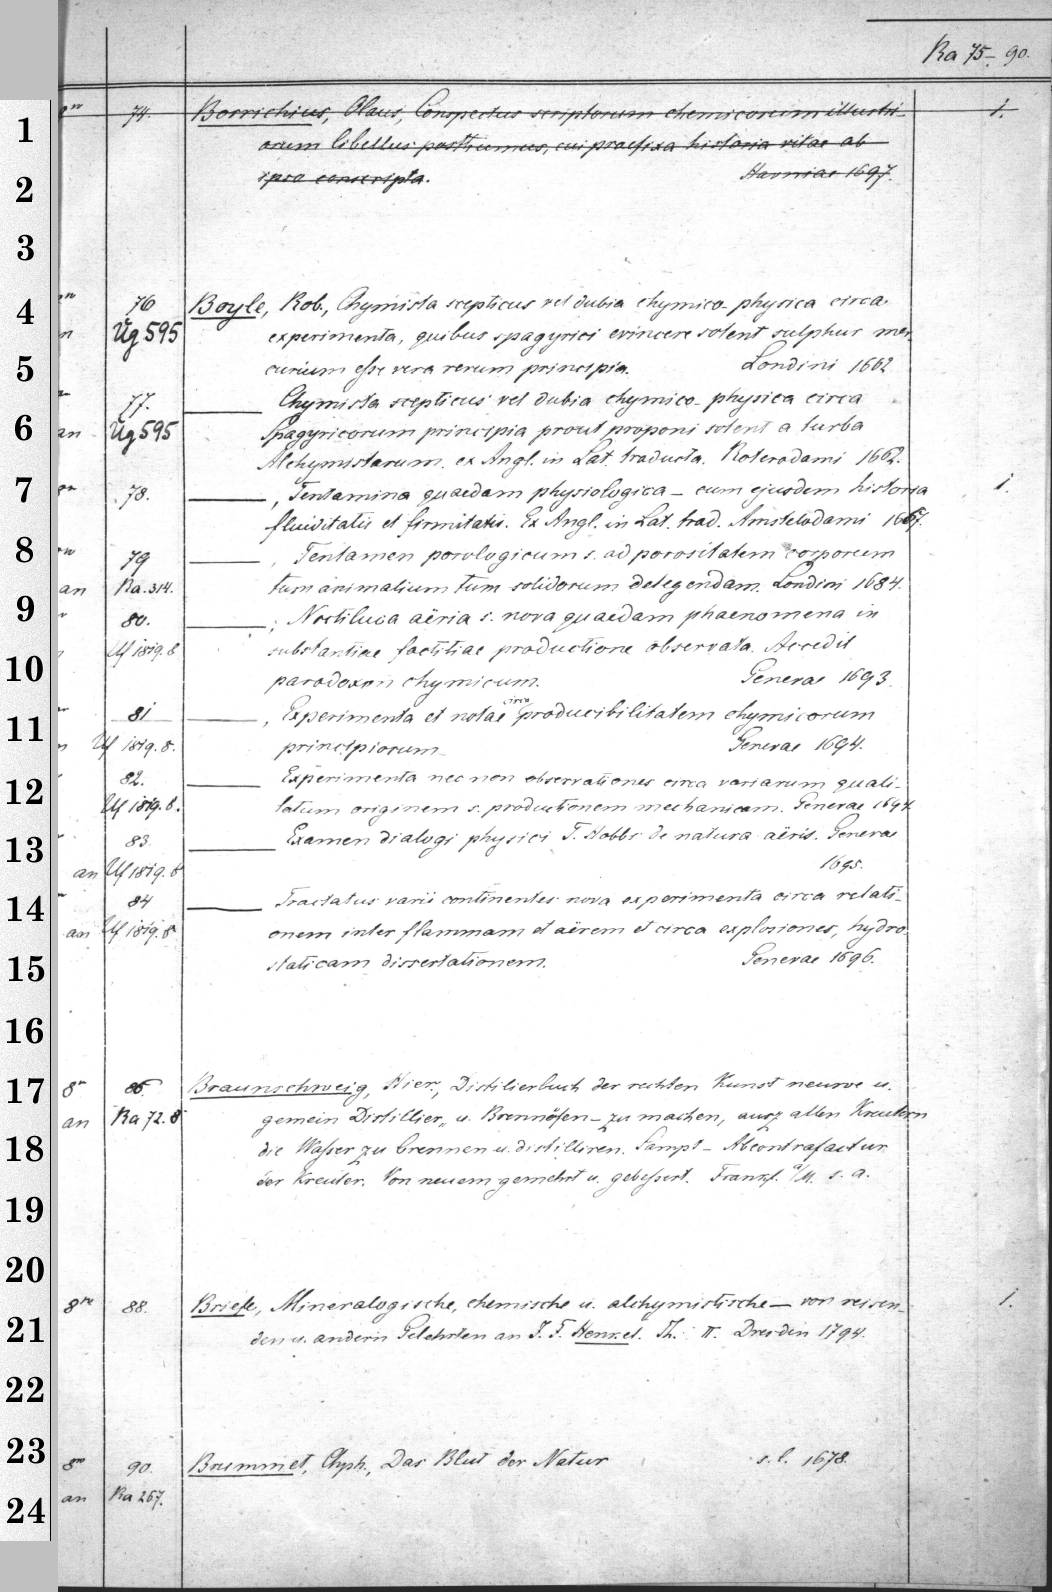 Ra 75-90.
1
74. Borrichius, Olaus, Conspectus scriptorum chemicorum illustri- 1.
orum libellus posthumus, cui praefixa historia vitae ab
2
ipso conscripta. Havniae 1697.
3
4
76 Boyle, Rob., Chymista scepticus vel dubia chymico-physica circa
Ug 595 experimenta, quibus spagyrici evincere solent sulphur mer-
5
curium esse vera rerum principia. Londini 1662
77. Chymista scepticus vel dubia chymico-physica circa
6
an Ug 595 Spagyricorum principia prout proponi solent a turba
Alchymistarum. ex Angl. in Lat. traducta. Roterodami 1662.
7
78. , Tentamina quaedam physiologica - cum ejusdem historia 1.
fluiditatis et firmitatis. Ex Angl. in Lat. trad. Amstelodami 1667.
8
79 , Tentamen porologicum s. ad porositatem corporum
an Ra. 314. tum animalium tum solidorum detegendam. Londini 1684.
9
80. , Noctiluca aëria s. nova quaedam phaenomena in
10
Uf 181g. 8 substantiae factitiae productione observata. Accedit
paradoxon chymicum. Genevae 1693.
11
81 , Experimenta et notae circa producibilitatem chymicorum
Uf 181g. 8. principiorum Genevae 1694.
12
82. Experimenta nec non observationes circa variarum quali-
Uf 181g. 8. tatum originem s. productionem mechanicam. Genevae 1694
13
83 Examen dialogi physici T. Hobbs de natura aëris. Genevae
an Uf 181g. 8 1695.
14
84 Tractatus varii continentes nova experimenta circa relati-
an Uf 181g. 8 onem inter flammam et aërem et circa explosiones, hydro-
15
staticam dissertationem. Genevae 1696.
16
17
8° 86 Braunschweig, Hier., Distilierbuch der rechten Kunst neuwe u.
an Ra 72. 8 gemein Distillier- u. Brennöfen - zu machen, ausz allen Kreutern
18
die Wasser zu brennen u. distilliren. Sampt - Abcontrafactur
der Kreuter. Von neuem gemehrt u. gebessert. Frankf. a/M. s. a.
19
20
88. Briefe, Mineralogische, chemische u. alchymistische - von reisen- 1.
21
den u. andern Gelehrten an J. F. Henkel. Th. II. Dresden 1794.
22
23
90. Brummet, Chph., Das Blut der Natur s. l. 1678.
24
an Ra 267.